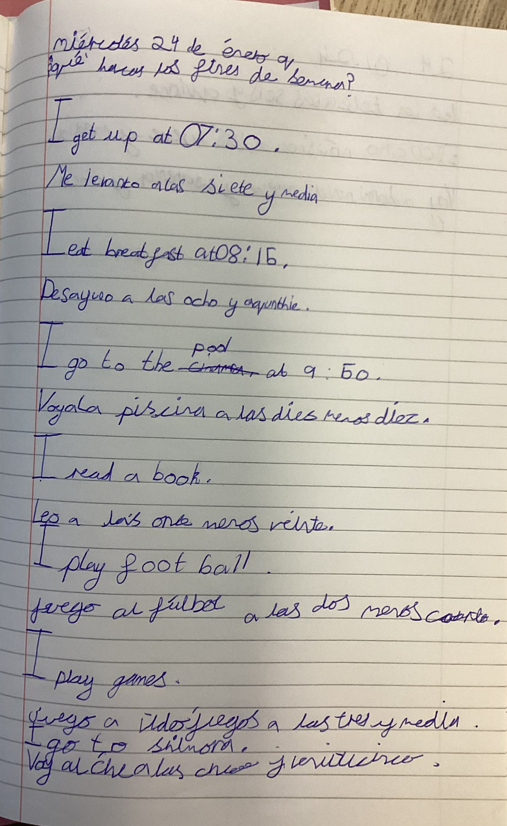 miércoles 24 de énero
qué haces los fines de semena?
I get up at 07:30.
Me levanto a las siete y media
I eat breatfast at 08:15.
Desayuno a las ocho y
I go to the pool at 9:50.
Voy a la piscina a las dies menos diez.
I read a book.
Leo a las once menos veinte.
I play foot ball.
juego al fútbol a las dos menos cuarto.
I play games.
juego a a las tres y media.
I go to
Voy al a las